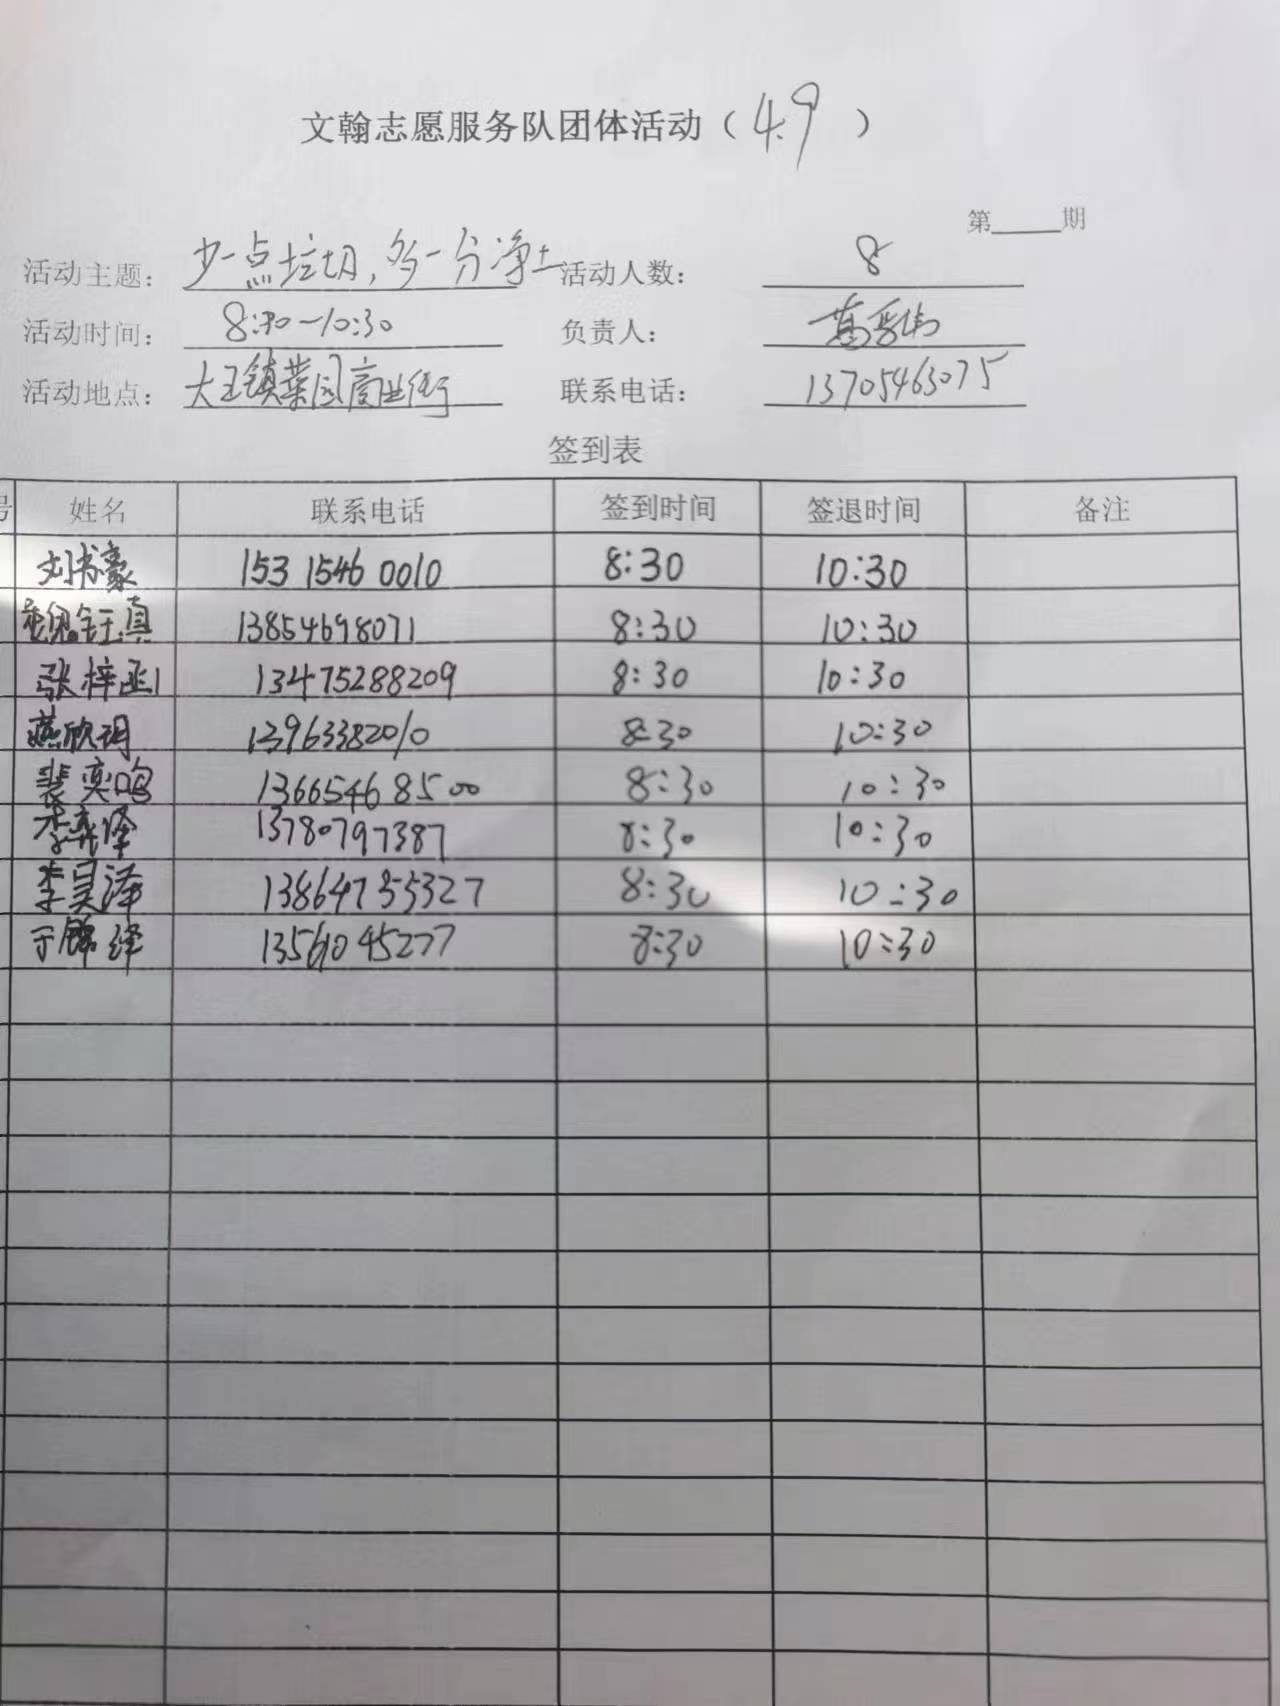 文翰志愿服务队团体活动（4.9）
第 期
活动主题： 少一点垃圾，多一分净土 活动人数： 8
活动时间： 8:30-10:30 负责人：
活动地点： 大王镇菜园商业街 联系电话： 13705463075
签到表
号 姓名 联系电话 签到时间 签退时间 备注
刘书豪 15315460010 8:30 10:30
13854698071 8:30 10:30
张梓函 13475288209 8:30 10:30
燕欣玥 13963382010 8:30 10:30
裴奕鸣 13665468500 8:30 10:30
李弈泽 13780797387 8:30 10:30
李昊泽 13864735327 8:30 10:30
于锦绎 13561045277 8:30 10:30